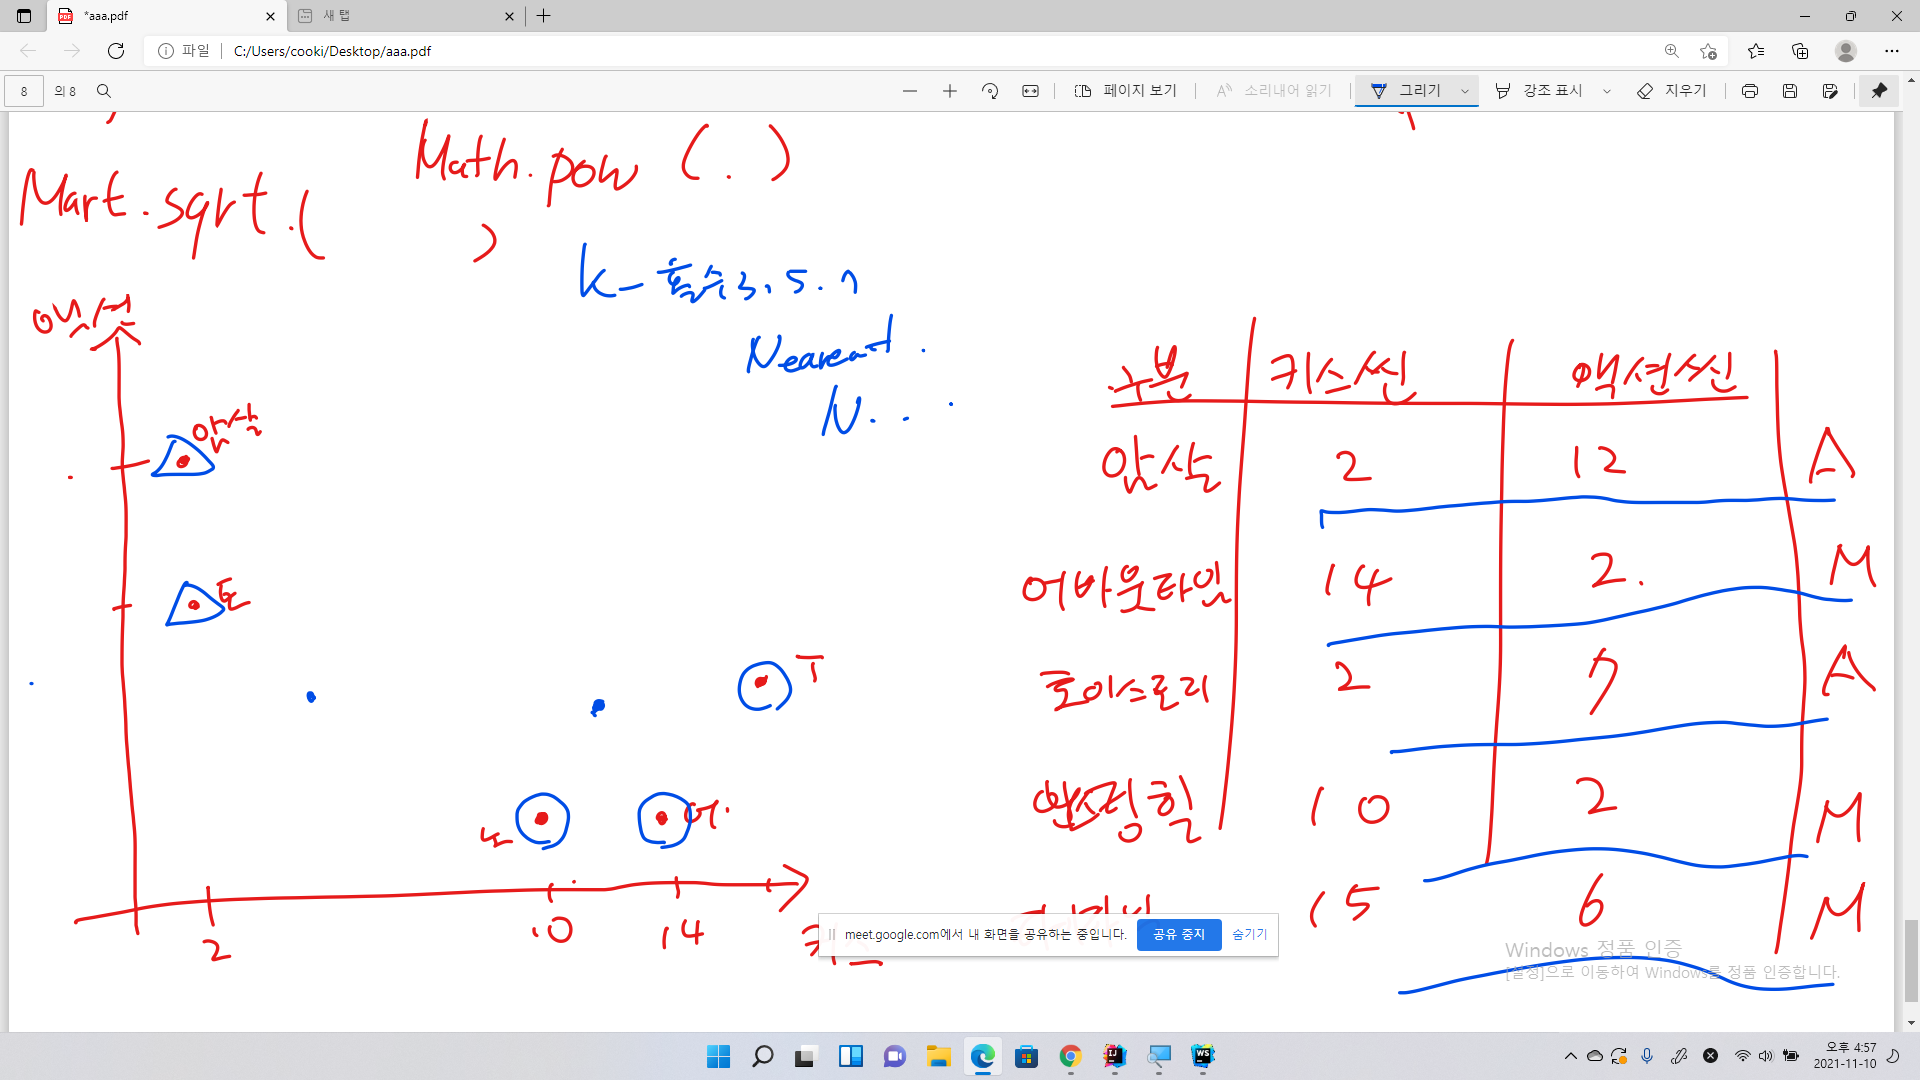 *aaa.pdf
새 탭
파일
C:/Users/cooki/Desktop/aaa.pdf
8
의 8
페이지 보기
소리내어 읽기
그리기
강조 표시
지우기
Math.pow ( . )
Mart.sqrt.( )
k-홀수3, 5. 7
N...
액션
암살
토
T
노
어.
2
10
14
구분 키스씬 액션씬
암살 2 12 A
어바웃타임 14 2. M
토이스토리 2 7 A
10 2 M
15 6 M
meet.google.com에서 내 화면을 공유하는 중입니다.
공유 중지
숨기기
Windows 정품 인증
[설정]으로 이동하여 Windows를 정품 인증합니다.
오후 4:57
2021-11-10